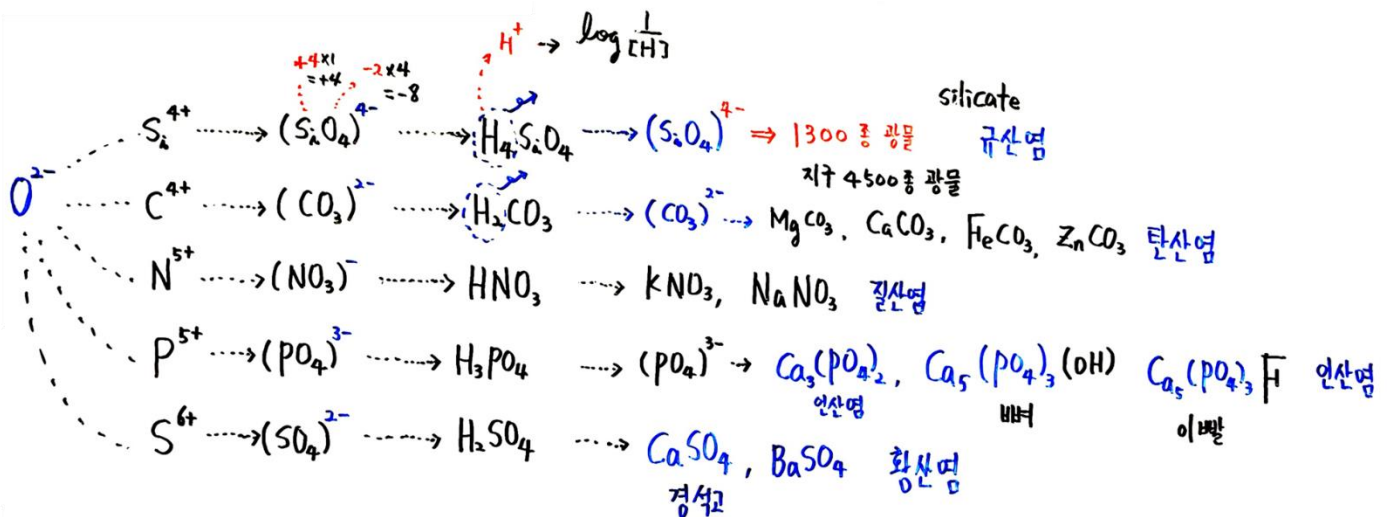 H⁺ → log 1/[H]
+4×1 =+4 -2×4 =-8
silicate
Si⁴⁺ → (SiO₄)⁴⁻ → H₄SiO₄ → (SiO₄)⁴⁻ ⇒ 1300 종 광물 규산염
지구 4500종 광물
O²⁻
C⁴⁺ → (CO₃)²⁻ → H₂CO₃ → (CO₃)²⁻ → MgCO₃, CaCO₃, FeCO₃, ZnCO₃ 탄산염
N⁵⁺ → (NO₃)⁻ → HNO₃ → KNO₃, NaNO₃ 질산염
P⁵⁺ → (PO₄)³⁻ → H₃PO₄ → (PO₄)³⁻ → Ca₃(PO₄)₂, Ca₅(PO₄)₃(OH) Ca₅(PO₄)₃F 인산염
인산염 뼈 이빨
S⁶⁺ → (SO₄)²⁻ → H₂SO₄ → CaSO₄, BaSO₄ 황산염
경석고